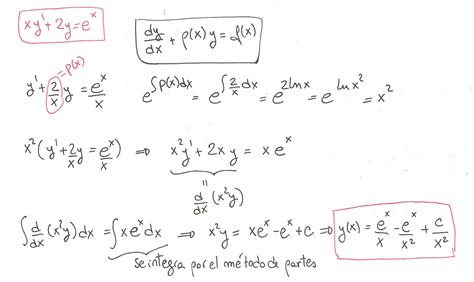 xy' + 2y = e^x
dy/dx + p(x) y = f(x)
y' + (2/x) y = e^x/x
= p(x)
e^{∫p(x)dx} = e^{∫(2/x)dx} = e^{2lnx} = e^{lnx^2} = x^2
x^2 (y' + 2y/x = e^x/x) ⇒ x^2y' + 2xy = xe^x
"
d/dx (x^2y)
∫ d/dx (x^2y) dx = ∫ xe^x dx ⇒ x^2y = xe^x - e^x + c ⇒ y(x) = e^x/x - e^x/x^2 + c/x^2
se integra por el método de partes